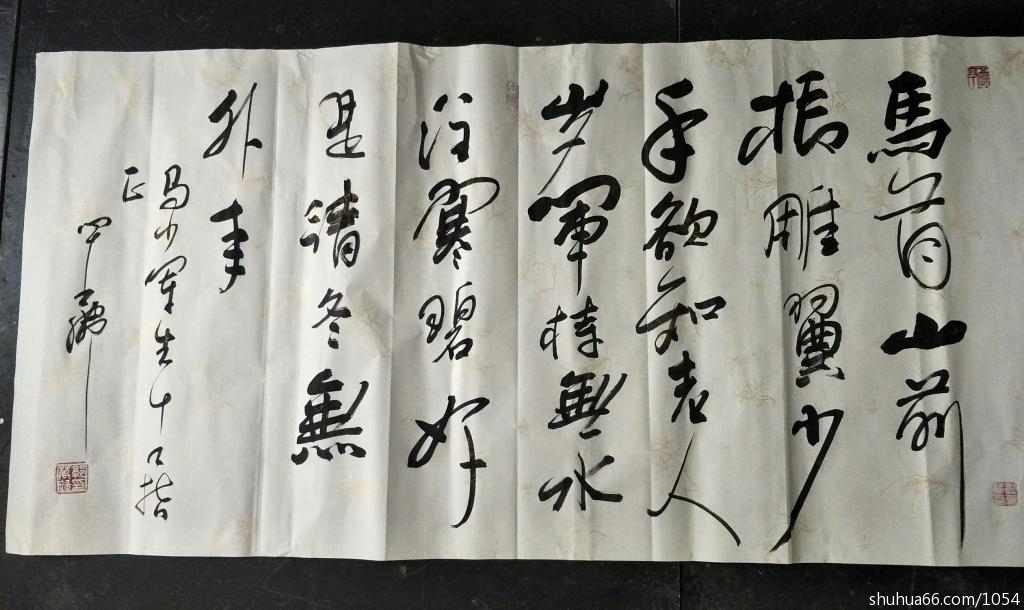 馬首山前
振雕翼少
年欲知老人
岁軍持無水
注寒碧好
是清冬無
外事
馬少軍生 指
正
shuhua66.com/1054